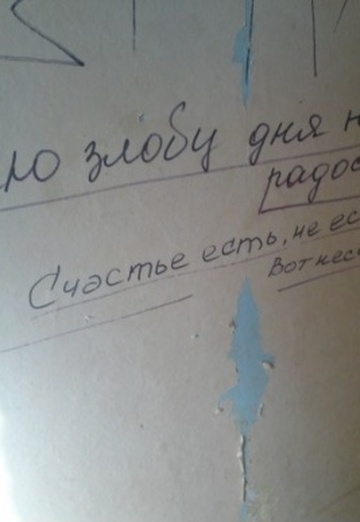 ло злобу дня н
радос
Счастье есть, не ес
Вот несч